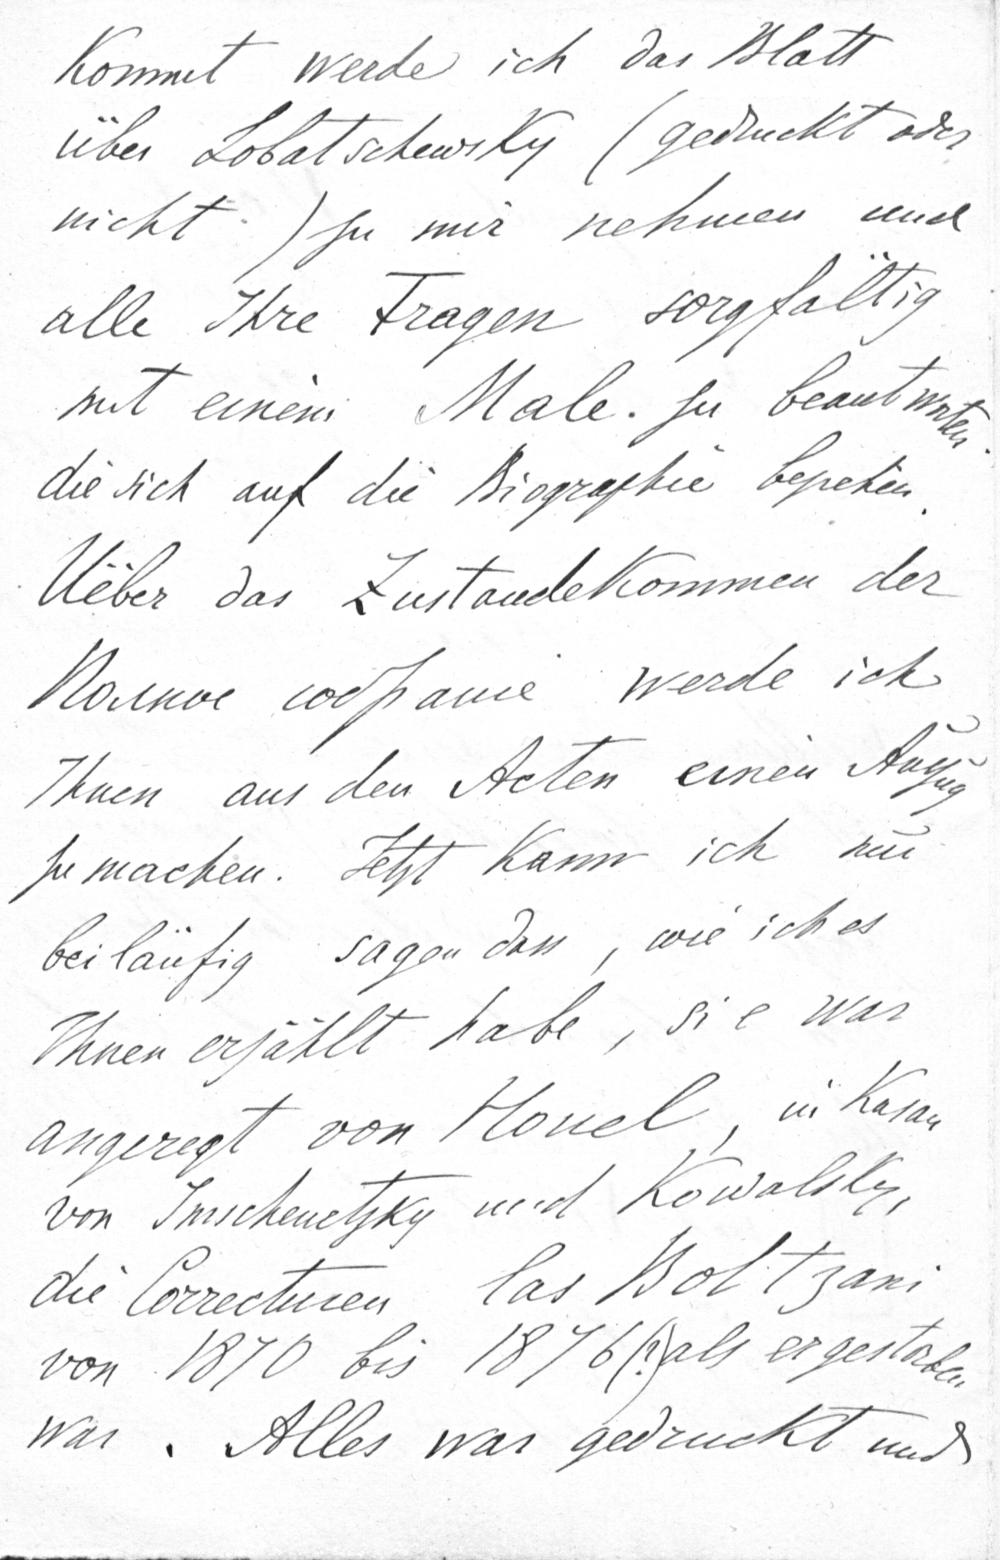 Kommt werde ich das Blatt
über Lobatschewsky (gedruckt oder
nicht) zu mir nehmen und
alle Ihre Fragen sorgfältig
mit einem Male. zu beantworten.
die sich auf die Biographie beziehen.
Ueber das Zustandekommen der
Полное собрание werde ich
Ihnen aus den Acten einen Auszug
zu machen. Jetzt kann ich nur
beiläufig sagen dass, wie ich es
Ihnen erzählt habe, sie war
angeregt von Houel, in Kasan
von Imschenetzky und Kowalsky,
die Correcturen las Boltzani
von 1870 bis 1876(?) als er gestorben
war. Alles war gedruckt und